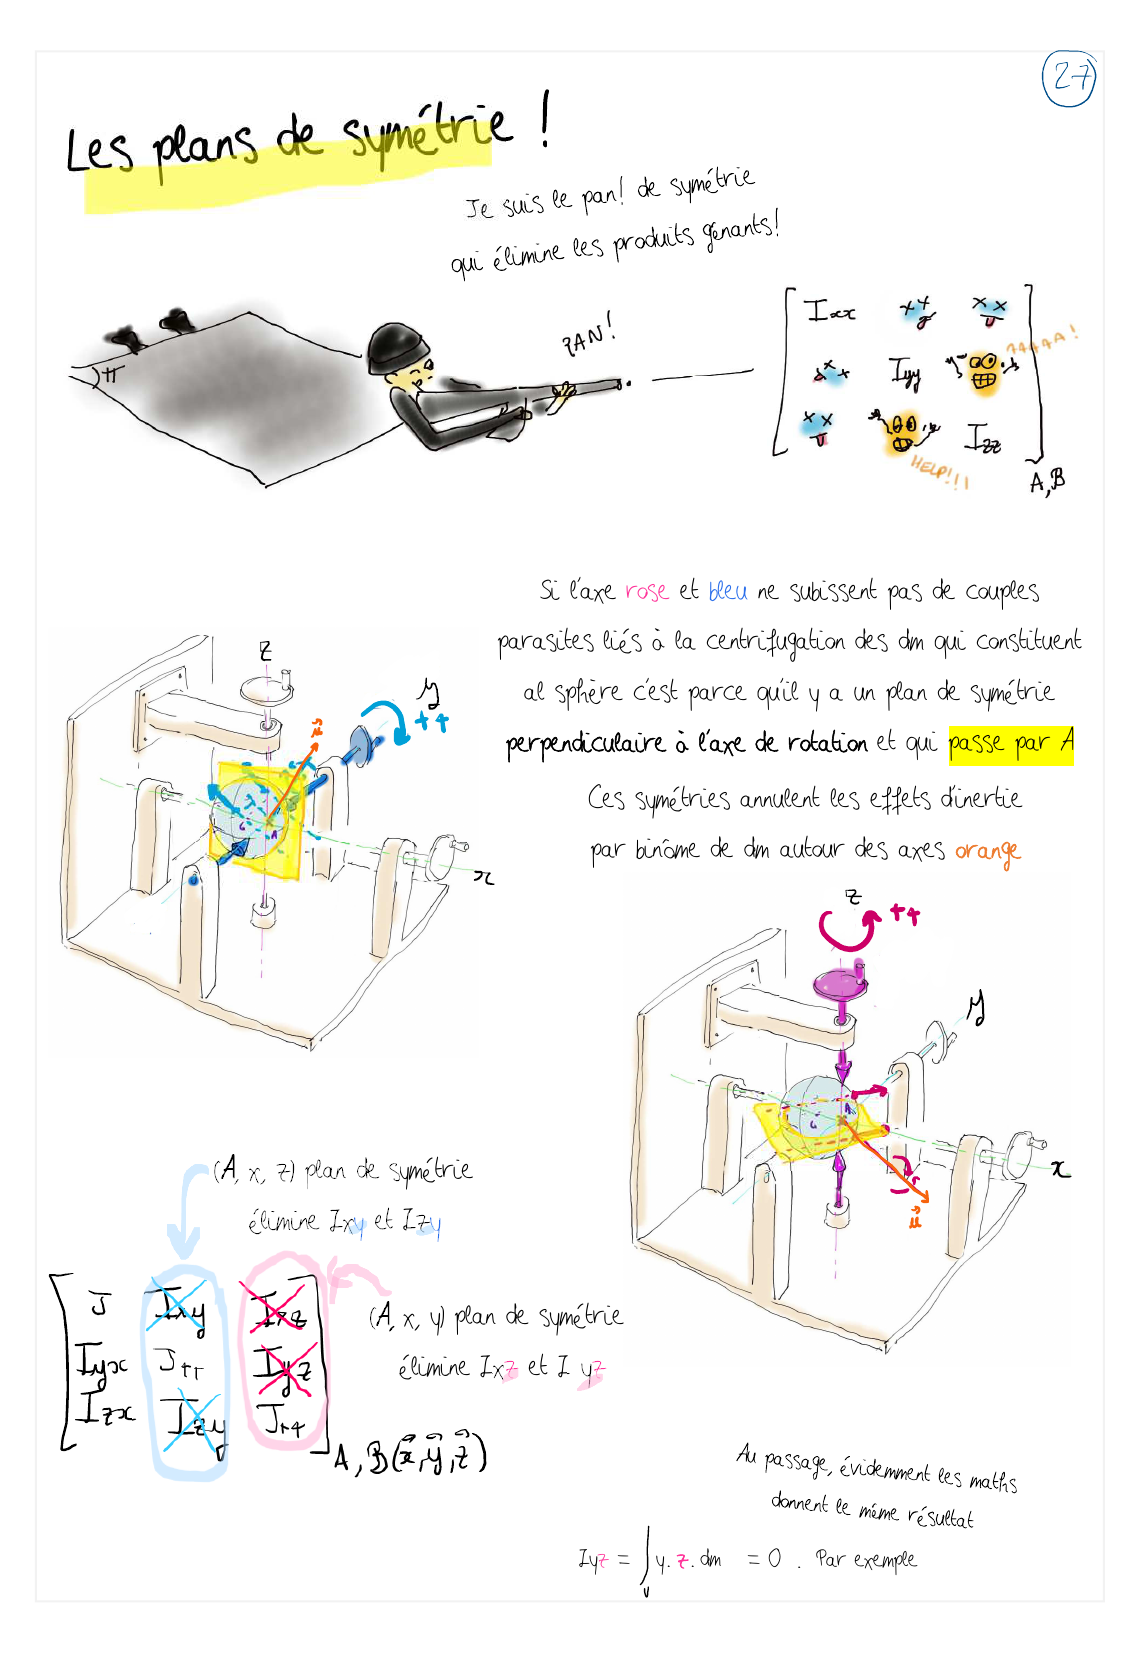 27
Les plans de symétrie !
Je suis le pan! de symétrie
qui élimine les produits gênants!
π
PAN!
Ixx
AAAAA!
Iyy
HELP!!!
Izz
A, B
Si l'axe rose et bleu ne subissent pas de couples
parasites liés à la centrifugation des dm qui constituent
al sphère c'est parce qu'il y a un plan de symétrie
perpendiculaire à l'axe de rotation et qui passe par A
Ces symétries annulent les effets d'inertie
par binôme de dm autour des axes orange
z
y
++
u
G
A
x
z
++
y
G
A
x
u
(A, x, z) plan de symétrie
élimine Ixy et Izy
J Ixy Ixz
Iyx J++ Iyz
Izx Izy J++
A, B(x, y, z)
(A, x, y) plan de symétrie
élimine Ixz et I yz
Au passage, évidemment les maths
donnent le même résultat
Iyz = ∫ y. z. dm = 0 . Par exemple
v